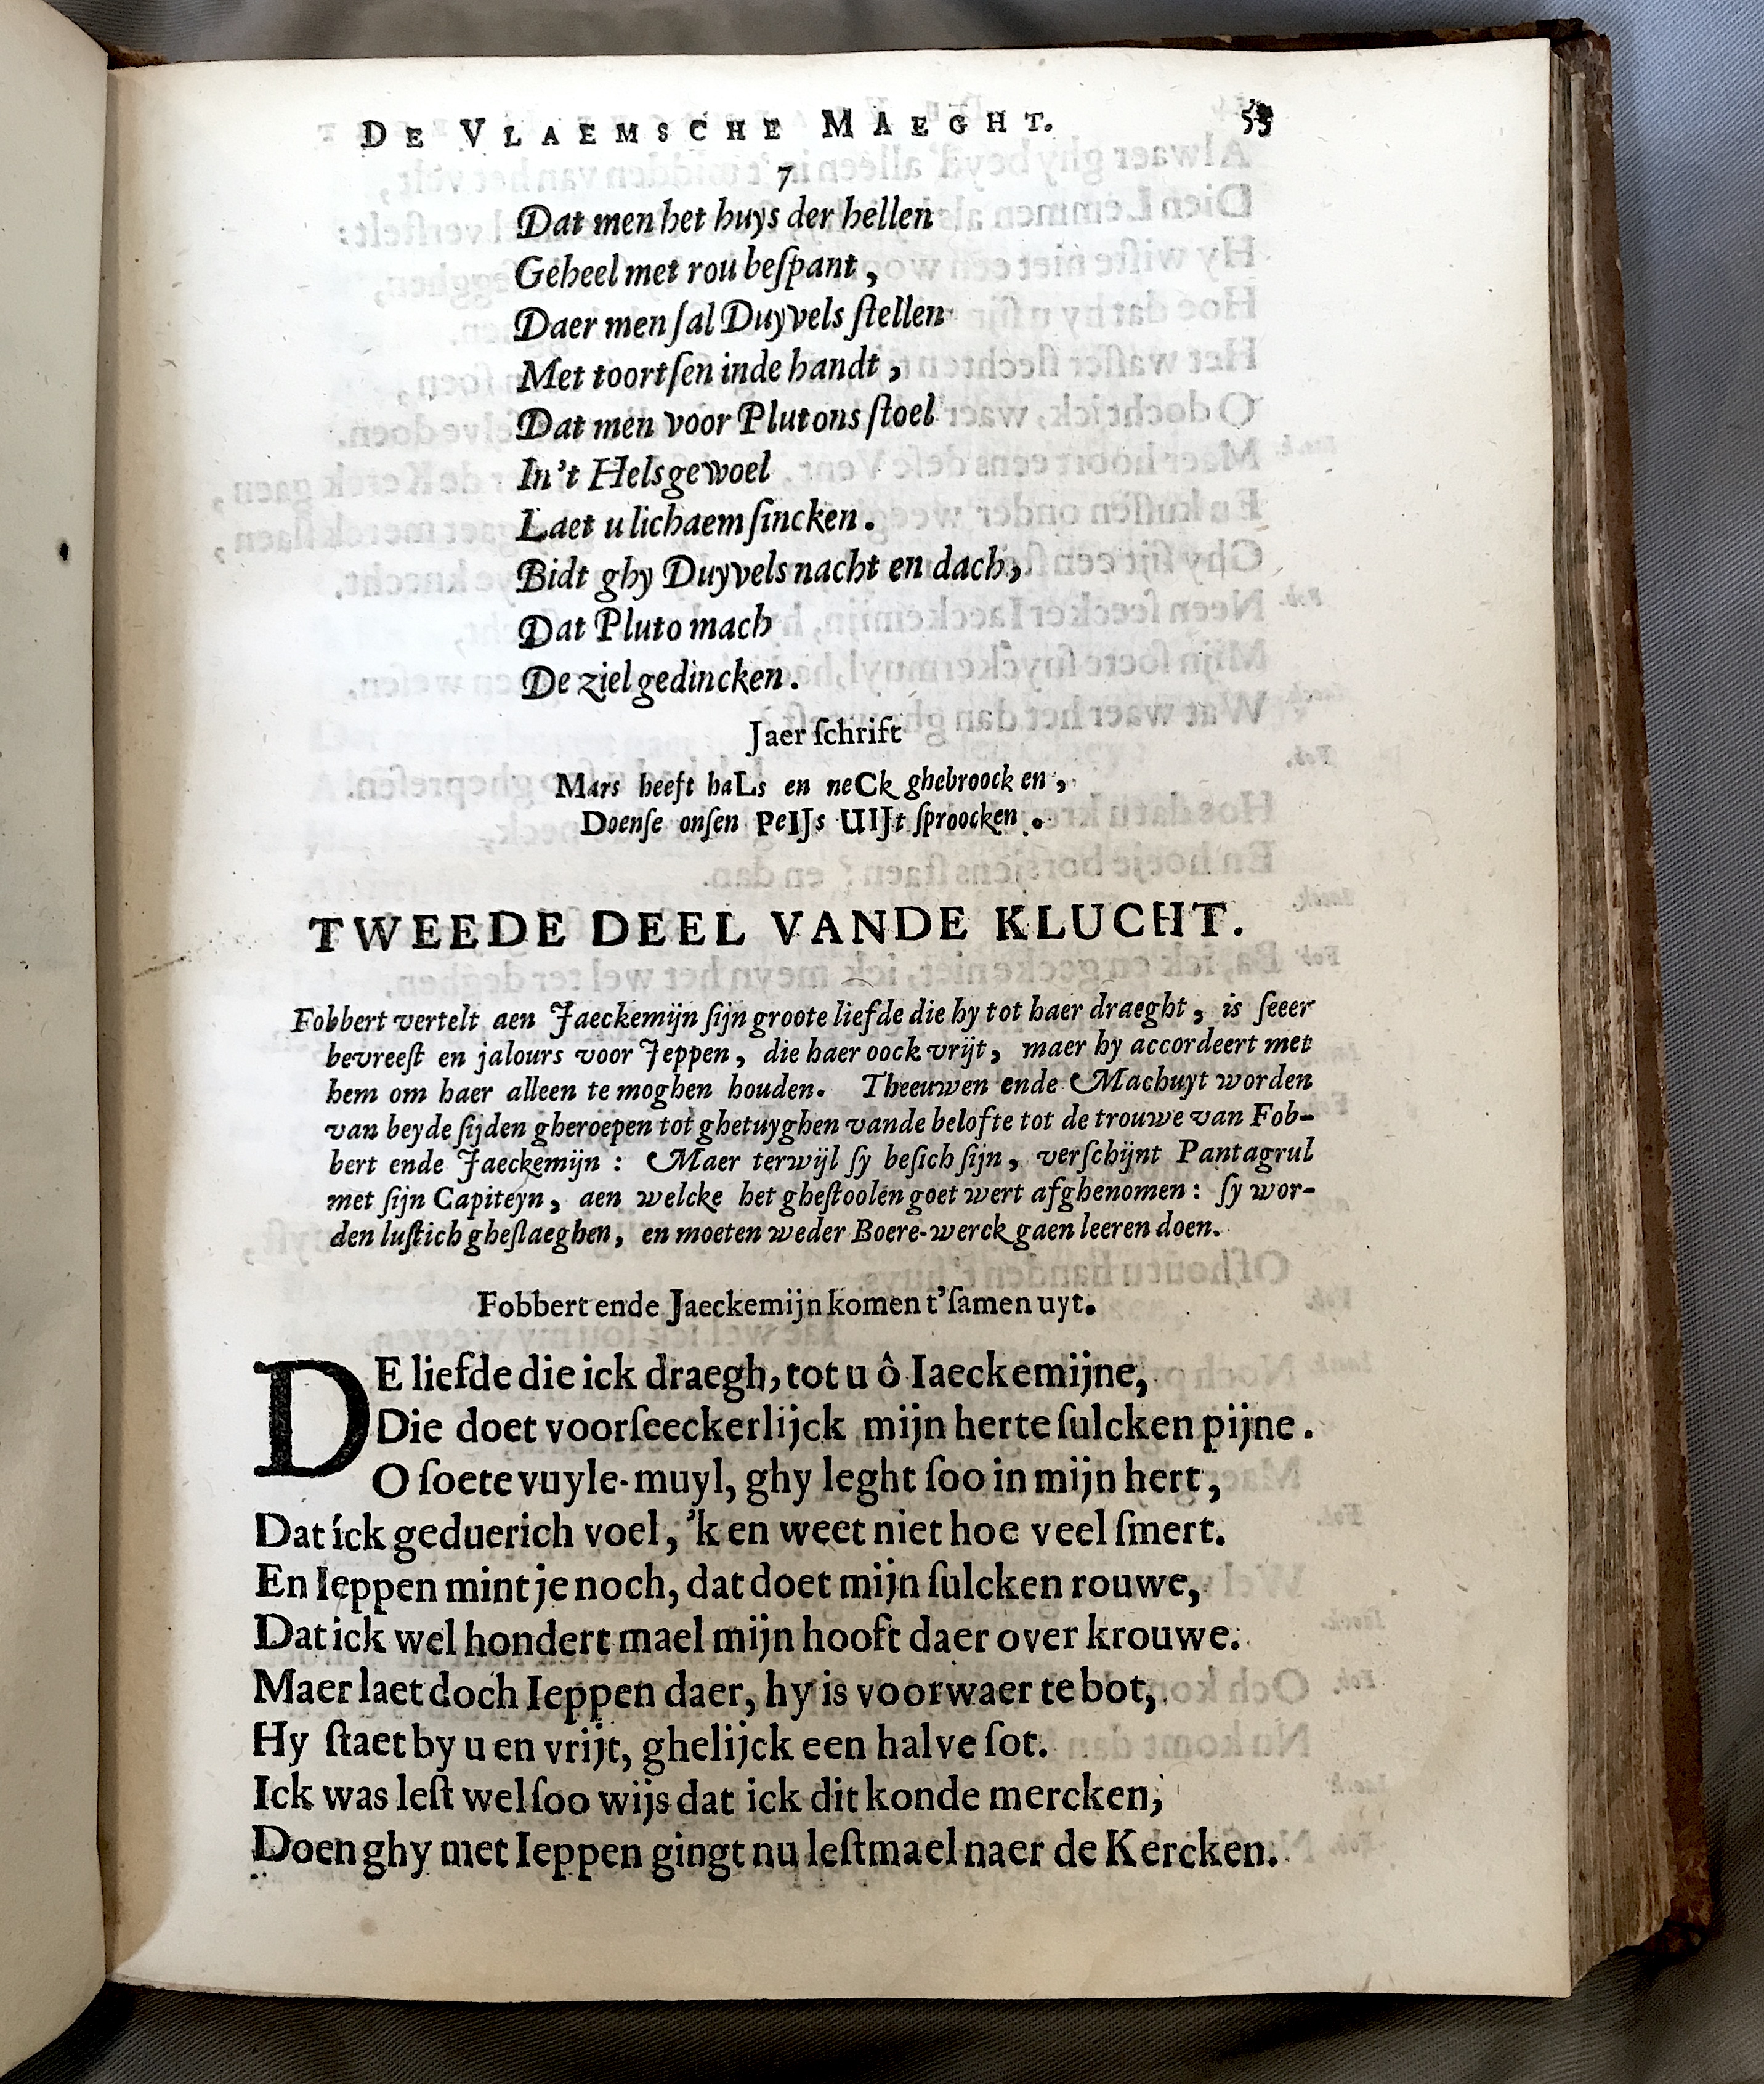 DE VLAEMSCHE MAEGHT. 55
7
Dat men het huys der hellen
Geheel met rou beſpant,
Daer men ſal Duyvels ſtellen
Met toortſen inde handt,
Dat men voor Plutons ſtoel
In't Helsgewoel
Laet u lichaem ſincken.
Bidt ghy Duyvels nacht en dach,
Dat Pluto mach
De ziel gedincken.
Jaer ſchrift
Mars heeft haLs en neCk ghebroocken,
Doenſe onſen PeIJs UIJt ſproocken.
TWEEDE DEEL VANDE KLUCHT.
Fobbert vertelt aen Jaeckemijn ſijn groote liefde die hy tot haer draeght, is ſeeer
bevreeſt en jalours voor Jeppen, die haer oock vrijt, maer hy accordeert met
hem om haer alleen te moghen houden. Theeuwen ende Machuyt worden
van beyde ſijden gheroepen tot ghetuyghen vande belofte tot de trouwe van Fob-
bert ende Jaeckemijn: Maer terwijl ſy beſich ſijn, verſchijnt Pantagrul
met ſijn Capiteyn, aen welcke het gheſtoolen goet wert afghenomen: ſy wor-
den luſtich gheſlaeghen, en moeten weder Boere-werck gaen leeren doen.
Fobbert ende Jaeckemijn komen t'ſamen uyt.
DE liefde die ick draegh, tot u ô Iaeckemijne,
Die doet voorſeeckerlijck mijn herte ſulcken pijne.
O ſoete vuyle-muyl, ghy leght ſoo in mijn hert,
Dat íck geduerich voel, 'k en weet niet hoe veel ſmert.
En Ieppen mint je noch, dat doet mijn ſulcken rouwe,
Dat ick wel hondert mael mijn hooft daer over krouwe.
Maer laet doch Ieppen daer, hy is voorwaer te bot,
Hy ſtaet by u en vrijt, ghelijck een halve ſot.
Ick was leſt wel ſoo wijs dat ick dit konde mercken,
Doen ghy met Ieppen gingt nu leſtmael naer de Kercken.